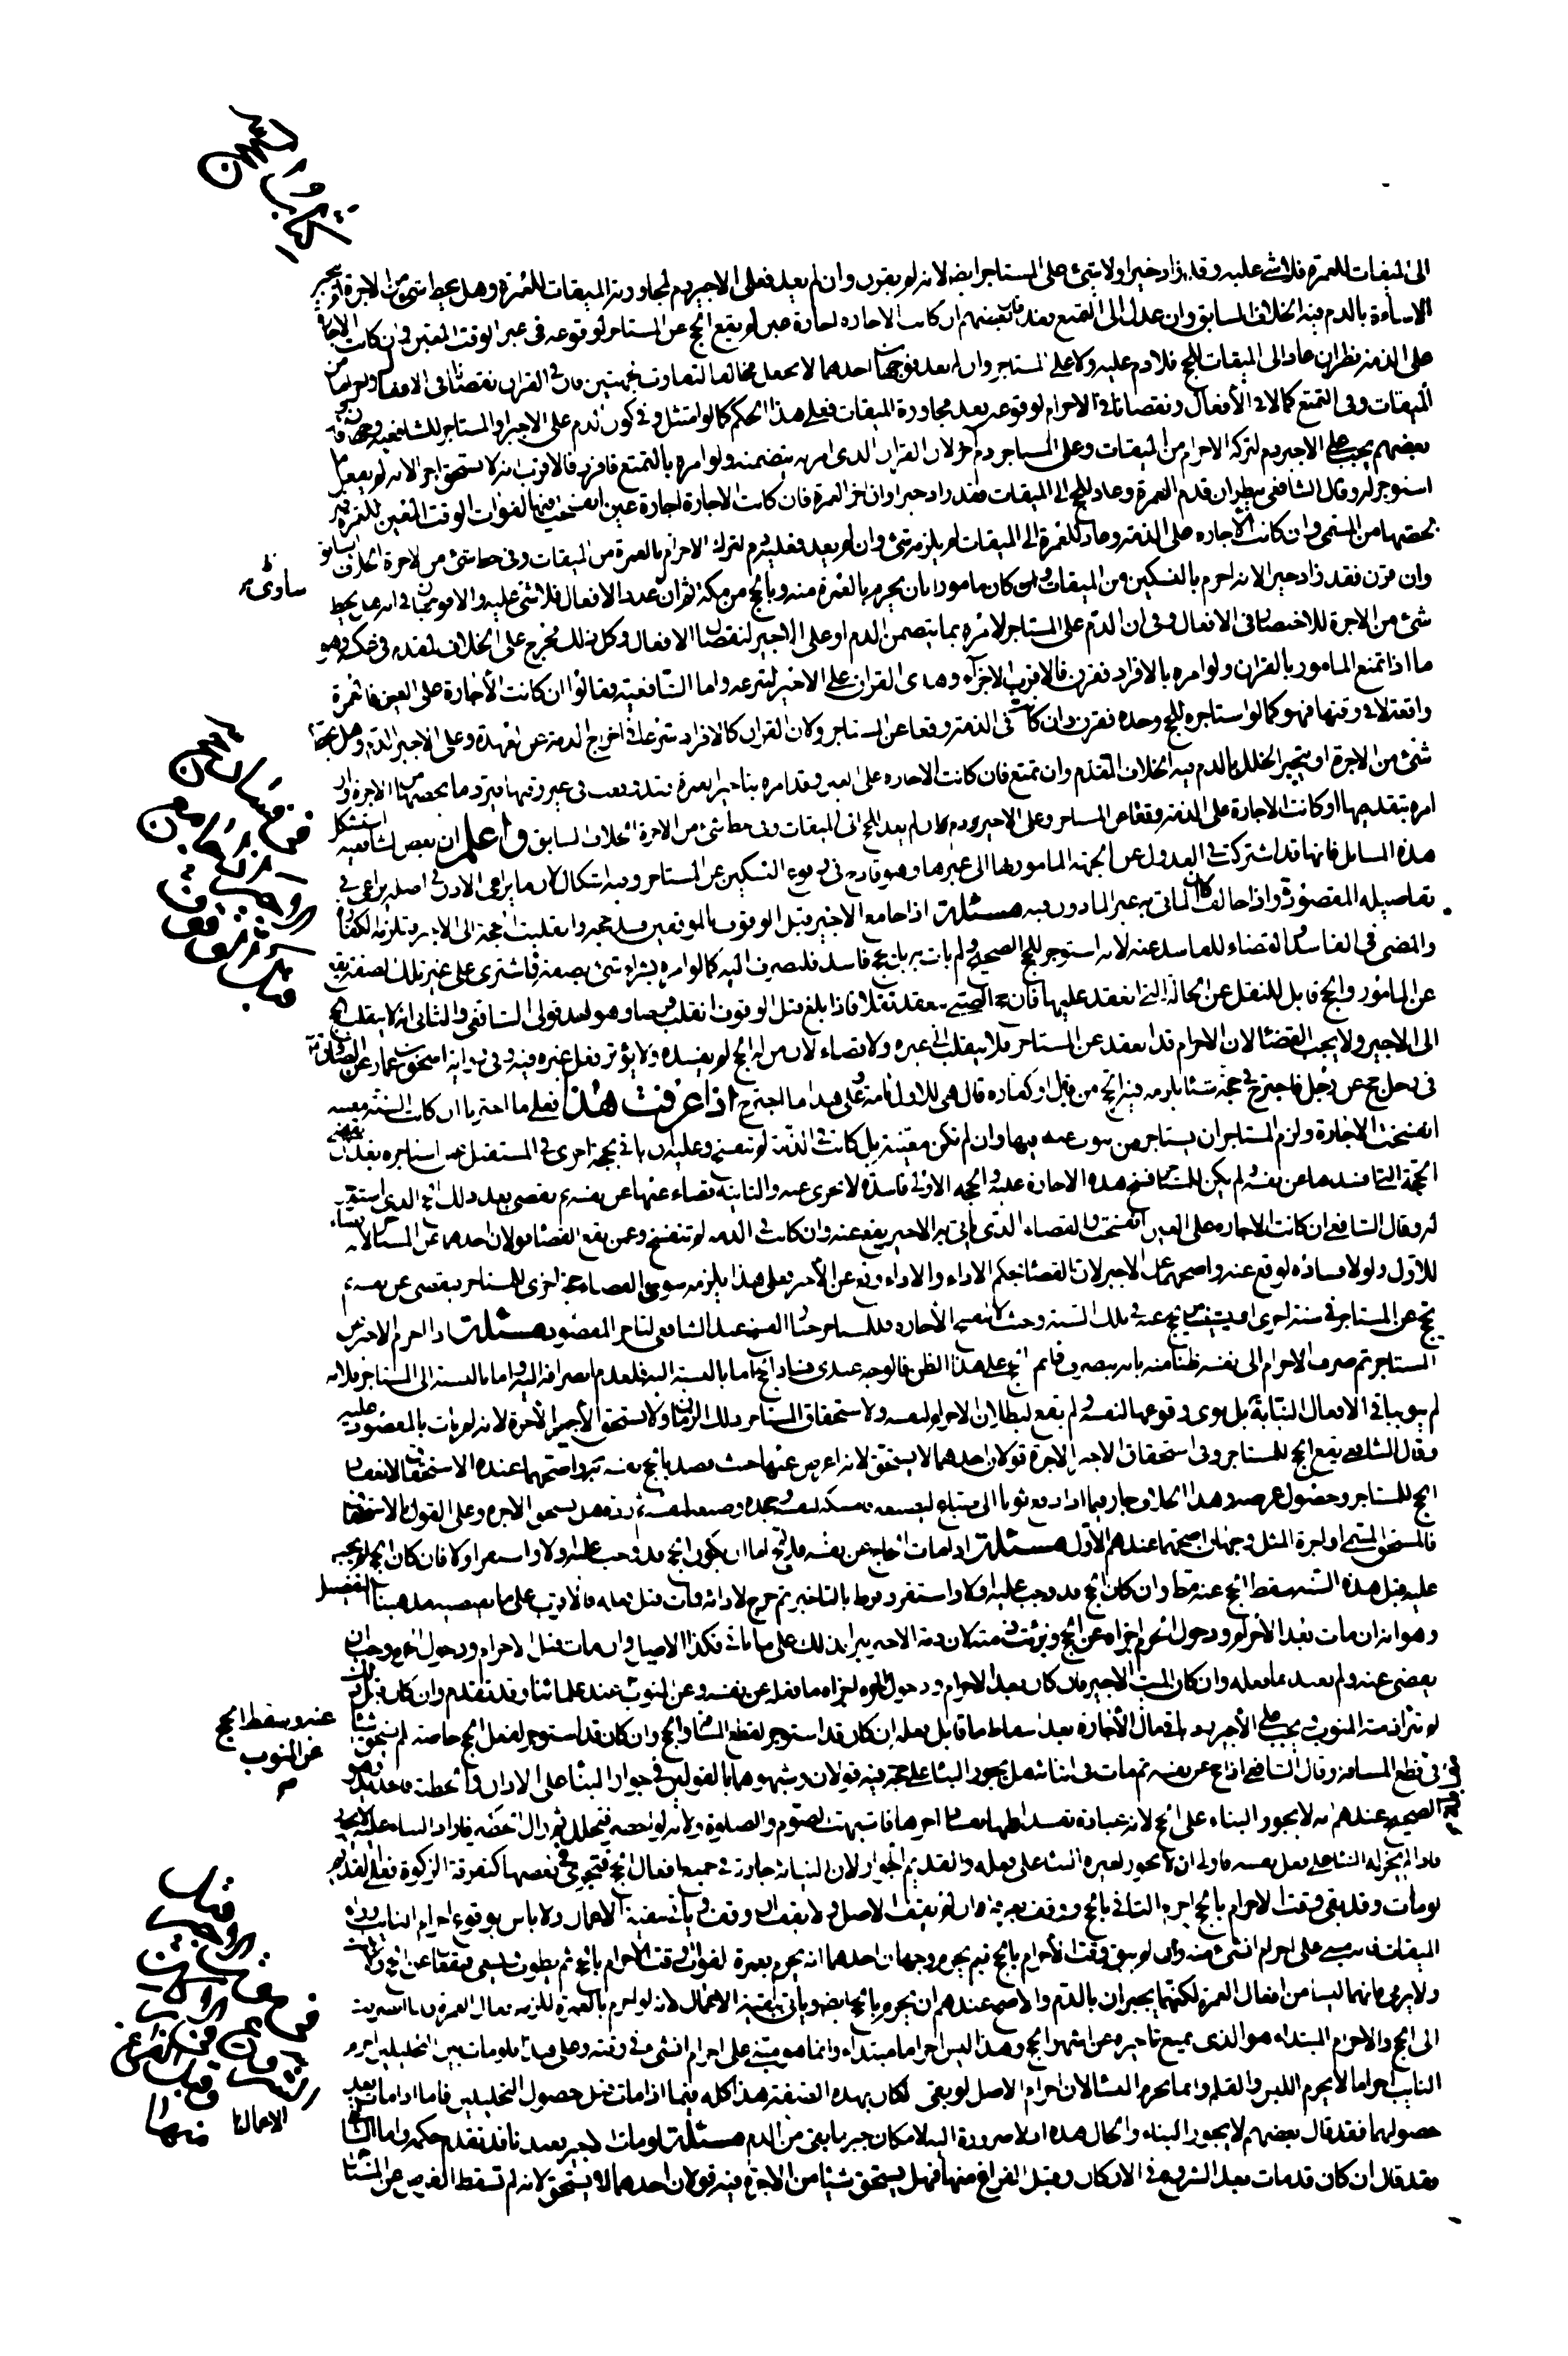 الى الميقات للعمرة فلا شئ عليه وقد زاد خيرا ولا شئ على المستاجر ايضا لانه لو يقرن وان لم يعد فعلى الاجير دم لمجاوزته الميقات للعمرة وهل يحط شئ من الاجرة او يتجبر
الاساءة بالدم فيه الخلاف السابق وان عدل الى التمتع فقد قال بعضهم ان كانت الاجارة اجارة عين لم يقع الحج عن المستاجر لوقوعه في غير الوقت المعين وان كانت الاجارة
على الذمة نظر ان عاد الى الميقات للحج فلا دم عليه ولا على المستاجر وان لم يعد فوجهان احدهما لا يجعل مخالفا لتقارب الجهتين فان في القران نقصانا في الافعال واحراما من
الميقات وفي التمتع كمالا في الأفعال ونقصانا في الاحرام لوقوعه بعد مجاوزة الميقات فعلى هذا الحكم كما لو امتثل وفي كون الدم على الاجير او المستاجر للشافعية وجهان وقال
بعضهم يجب على الاجير دم لتركه الاحرام من الميقات وعلى المستاجر دم آخر لان القران الذى امر به يتضمنه ولو امره بالتمتع فقرن فالاقرب انه لا يستحق اجرا لانه لم يفعل ما
استوجر له وقال الشافعي ينظر ان قدم العمرة وعاد للحج الى الميقات فقد زاد خيرا وان اخر العمرة فان كانت الاجارة اجارة عين انفسخت فيها لفوات الوقت المعين للعمرة فيرد
بحصتها من المسمى وان كانت الاجارة على الذمة وعاد للعمرة الى الميقات لم يلزمه شئ وان لم يعد فعليه دم لترك الاحرام بالعمرة من الميقات وفي حط شئ من الاجرة الخلاف السابق
وان قرن فقد زاد خيرا لانه احرم بالنسكين من الميقات وكان مامورا بان يحرم بالعمرة منه وبالحج من مكة ثم ان عدد الافعال فلا شئ عليه والا فوجهان في انه هل يحط
شئ من الاجرة للاختصار في الافعال وفي ان الدم على المستاجر لامره بما يتضمن الدم او على الاجير لنقصان الافعال وكل ذلك مخرج على الخلاف المتقدم في عكسه وهو
ما اذا تمتع المامور بالقران ولو امره بالافراد فقرن فالاقرب الاجزاء وهدى القران على الاجير لتبرعه واما الشافعية فقالوا ان كانت الأجارة على العين فالعمرة
واقعة لا في وقتها فهو كما لو استاجره للحج وحده فقرن وان كانت في الذمة وقعا عن المستاجر ولان القران كالافراد شرعا في اخراج الذمة عن العهدة وعلى الاجير الدم وهل يحط
شئ من الاجرة او يتجبر الخلل بالدم فيه الخلاف المتقدم وان تمتع فان كانت الاجارة على العين وقد امره بتاخير العمرة فقد وقعت في غير وقتها فيرد ما يخصها من الاجرة وان
امره بتقديمها او كانت الاجارة على الذمة وقعا عن المستاجر وعلى الاجير دم ان لم يعد للحج الى الميقات وفي حط شئ من الاجرة الخلاف السابق واعلم ان بعض الشافعية استشكل
هذه المسايل فانها قد اشتركت في العدول عن الجهة المامور بها الى غيرها وهو قادح في وقوع النسكين عن المستاجر وفيه اشكال لان ما يراعى الاذن في اصله يراعى في
تفاصيله المقصودة واذا خالف كان الماتي به غير الماذون فيه مسئلة اذا جامع الاجير قبل الوقوف بالموقفين فسد حجه وانقلبت الحجة الى الاجير وتلزمه الكفارة
والمضي في الفاسد والقضاء للفاسد عنه لانه استوجر للحج الصحيح ولم يات به بل بحج فاسد فلينصرف اليه كما لو امره بشراء شئ بصفة فاشترى على غير تلك الصفة يقع
عن المامور والحج قابل للنقل عن الحالة التي انعقد عليها فان حج الصبي ينعقد نفلا فاذا بلغ قبل الوقوف انقلب فرضا وهو احد قولي الشافعي والثاني انه لا ينقلب الحج
الى الاجير ولا يجب القضاء لان الاحرام قد انعقد عن المستاجر فلا ينقلب الى غيره ولا قضاء لان من له الحج لم يفسده ولا يؤثر فعل غيره فيه وفي رواية اسحق بن عمار عن الصادق
في رجل حج عن رجل فاجترح في حجه شيئا يلزمه فيه الحج من قابل او كفارة قال هي للاول تامة وعلى هذا ما اجترح اذا عرفت هذا فعلى ما اخترناه ان كانت السنة معينة
انفسخت الاجارة ولزم المستاجر ان يستاجر من ينوب عنه فيها وان لم تكن معينة بل كانت في الذمة لم تنفسخ وعليه ان ياتي بحجة اخرى في المستقبل عمن استاجره بعد ان يقضي
الحجة التي افسدها عن نفسه ولم يكن للمستاجر فسخ هذه الاجارة عليه والحجة الاولى فاسدة لا تجزى عنه والثانية قضاء عنها عن نفسه ثم يقضي بعد ذلك الحج الذي استوجر
له وقال الشافعي ان كانت الاجارة على العين انفسخت والقضاء الذي ياتي به الاجير يقع عنه وان كانت في الذمة لم تنفسخ وعمن يقع القضاء قولان احدهما عن المستاجر لانه قضاء
للاول ولولا فساده لوقع عنه واصحهما عن الاجير لان القضاء بحكم الاداء والاداء وقع عن الاجير فعلى هذا يلزمه سوى القضاء حجة اخرى للمستاجر فيقضي عن نفسه ثم
يحج عن المستاجر في سنة اخرى او يستنيب من يحج عنه في تلك السنة وحيث لا تنفسخ الأجارة فللمستاجر خيار الفسخ عند الشافعي لتاخر المقصود مسئلة اذا احرم الاجير عن
المستاجر ثم صرف الاحرام الى نفسه ظنا منه بانه ينصرف فاتم الحج على هذا الظن فالوجه عندي فساد الحج اما بالنسبة اليه فلعدم انصرافه اليه واما بالنسبة الى المستاجر فلانه
لم ينو بباقي الافعال النيابة بل نوى وقوعها لنفسه ولم يقع لبطلان الاحرام لنفسه ولا ستحقاق المستاجر ذلك الزمان ولا يستحق الأجير الأجرة لانه لم يات بالمقصود عليه
وقال الشافعي يقع الحج للمستاجر وفي استحقاق الاجير الاجرة قولان احدهما لا يستحق لانه اعرض عنها حيث قصد بالحج نفسه واصحهما عنده الاستحقاق لانعقاد
الحج للمستاجر وحصول غرضه وهذا الخلاف جار فيما اذا دفع ثوبا الى صباغ ليصبغه فامسكه لنفسه وجحده وصبغه لنفسه ثم رده هل يستحق الاجرة وعلى القول بالاستحقاق
فالمستحق المسمى او اجرة المثل وجهان اصحهما عندهم الأول مسئلة اذا مات الحاج عن نفسه فلا يخ اما ان يكون الحج قد وجب عليه ولا واستقر او لا فان كان الحج لم يجب
عليه قبل هذه السنة سقط الحج عنه قطعا وان كان الحج قد وجب عليه اولا واستقر وفرط بالتاخير ثم خرج لادائه فمات قبل فعله فالاقرب على ما يقتضيه مذهبنا التفصيل
وهو انه ان مات بعد الأحرام ودخول الحرم اجزاه عن الحج وبرئت ذمته
يقضى عنه ولم يعتد بما فعله وان كان الميت الاجير فان كان بعد الاحرام ودخول الحرم اجزاه ما فعله عن نفسه وعن المنوب عند علمائنا وقد تقدم وان كان قبل ذلك
لم تبرا ذمة المنوب ويجب على الأجير رد باقي مال الأجارة بعد اسقاط ما قابل فعله ان كان قد استوجر لقطع المسافة والحج وان كان قد استوجر لفعل الحج خاصة لم يستحق شيئا
في قطع المسافة وقال الشافعي اذا حج عن نفسه ثم مات في اثنائه هل يجوز البناء على حجه فيه قولان وشبهوهما بالقولين في جواز البناء على الاذان والخطبة فالجديد وهو
الصحيح عندهم انه لا يجوز البناء على الحج لانه عبادة يفسد اولها بفساد اخرها فاشبهت الصوم والصلوة ولانه لو احصر فتحلل ثم زال الحصر فاراد البناء عليه لا يجوز
فاذا لم يجز له البناء على فعل نفسه فاولى ان لا يجوز لغيره البناء على فعله والقديم الجواز لان النيابة جارية في جميع افعال الحج فتجرى في بعضها كتفرقة الزكوة فعلى القديم
لو مات وقد بقي وقت الاحرام بالحج احرم النائب بالحج ووقف بعرفة ان لم يقف الاصل ولا يقف ان وقف وياتي ببقية الاعمال ولا باس بوقوع احرام النائب وراء
الميقات فانه مبني على احرام انشئ منه وان لم يبق وقت الأحرام بالحج فبم يحرم وجهان احدهما انه يحرم بعمرة لفوات وقت الاحرام بالحج ثم يطوف ويسعى فيقعان عن الحج
ولا يرمي فانهما ليسا من افعال العمرة لكنهما يجبران بالدم والاصح عندهم ان يحرم بالحج ايضا وياتي ببقية الاعمال لانه لو احرم بالعمرة للزمه افعال العمرة
الى الحج والاحرام المبتداء هو الذي يمنع تاخيره عن اشهر الحج وهذا ليس احراما مبتداء وانما هو مبني على احرام انشئ في وقته وعلى هذا فلو مات بين التحليلين احرم
النائب احراما لا يحرم اللبس والقلم وانما يحرم النساء لان احرام الاصل لو بقي لكان بهذه الصفة هذا كله فيما اذا مات قبل حصول التحليلين فاما اذا مات بعد
حصولهما فقد قال بعضهم لا يجوز البناء والحال هذه اذ لا ضرورة اليه لامكان جبر ما بقي من الدم مسئلة لو مات الاجير بعد فقد تقدم حكمه واما الشافعي
فقد قال ان كان قد مات بعد الشروع في الاركان وقبل الفراغ منها فهل يستحق شيئا من الاجرة فيه قولان احدهما لا يستحق لانه لم يسقط الفرض عن المستاجر
عنه وسقط الحج
عن المنوب